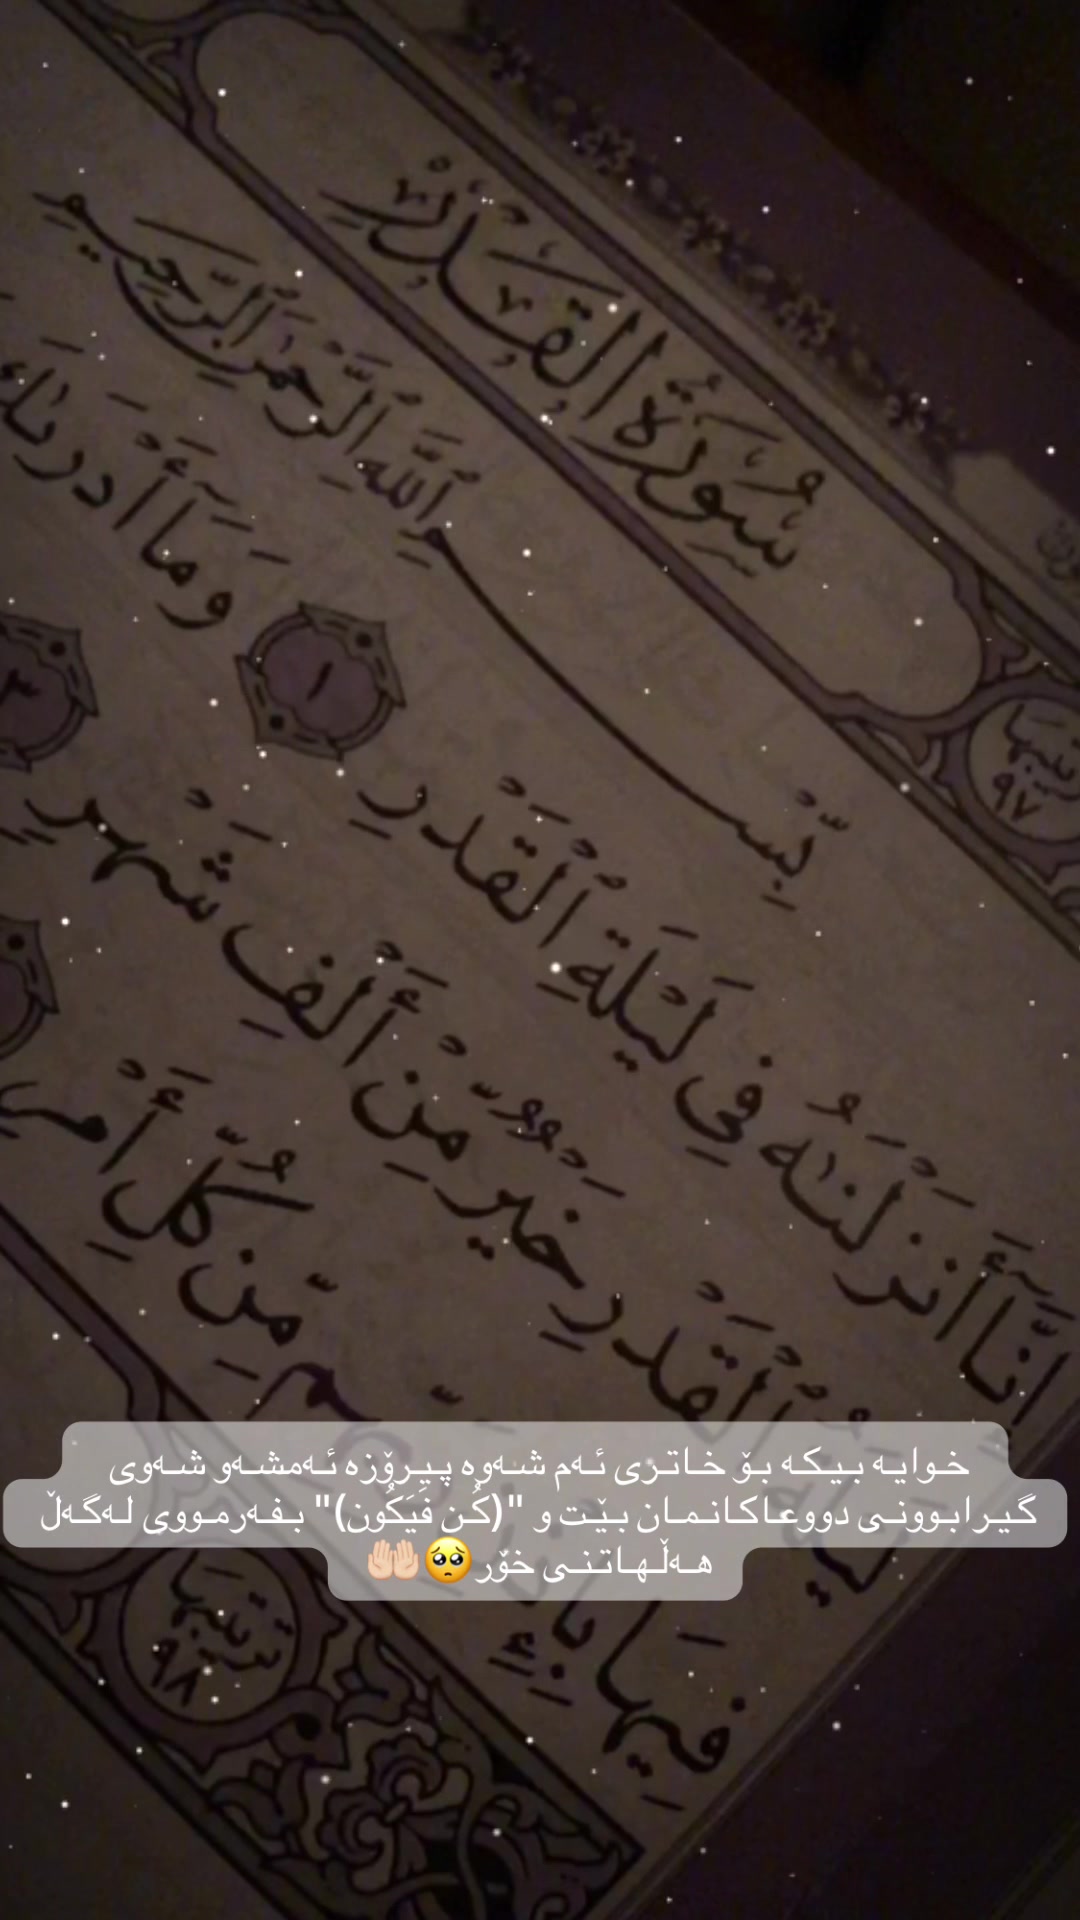 سُورَةُ القَدْرِ
تَرتيبها ٩٧
بِّسْمِ ٱللَّهِ ٱلرَّحْمَٰنِ ٱلرَّحِيمِ
إِنَّآ أَنزَلْنَٰهُ فِى لَيْلَةِ ٱلْقَدْرِ ١ وَمَآ أَدْرَىٰكَ
لَيْلَةُ ٱلْقَدْرِ خَيْرٌ مِّنْ أَلْفِ شَهْرٍ ٣
فِيهَا بِإِذْنِ مِّن كُلِّ أَمْرٍ
تَرتيبها ٩٨
خوایە بیکە بۆ خاتری ئەم شەوە پیرۆزە ئەمشەو شەوی
گیرابوونی دووعاکانمان بێت و "(كُن فَيَكُون)" بفەرمووی لەگەڵ
هەڵهاتنی خۆر🥺🤲🏻